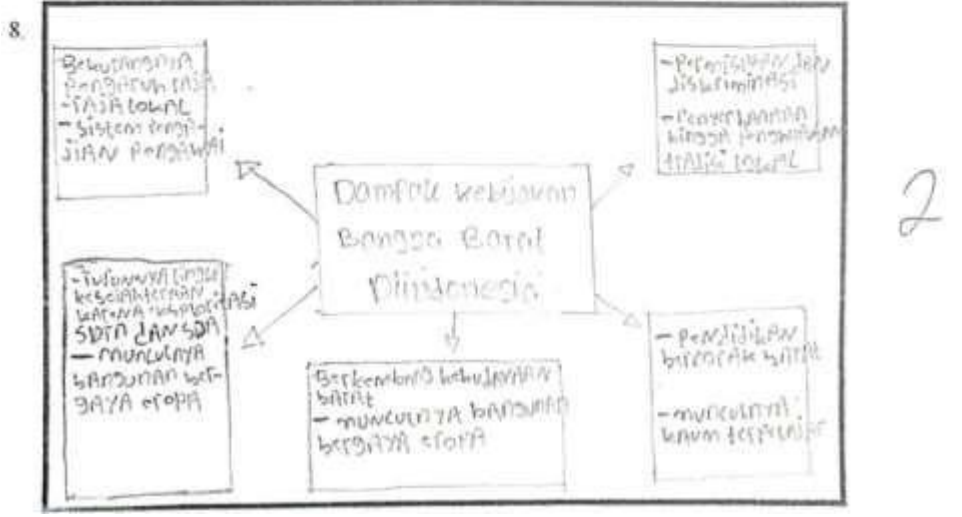 8.
Bekurangnya
pengaruh raja
-raja lokal
- sistem pengga-
jian pengawai
- Permisahan dan
diskriminasi
-
hingga
tradisi lokal
Dampak kebijakan
Bangsa Barat
Diindonesia
- Turunnya tingk
kesejahteraan
karena eksploritasi
SDM dan SDA
- munculnya
bangunan ber-
gaya eropa
Berkembang kebudayaan
barat
- munculnya bangunan
bergaya eropa
- pendidikan
bercorak barat
- munculnya
kaum terpelajar
2